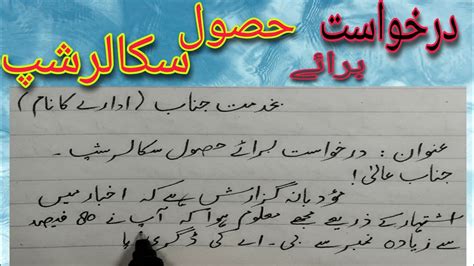 درخواست برائے حصول سکالرشپ
بخدمت جناب (ادارے کا نام)
عنوان : درخواست برائے حصول سکالرشپ ۔
جناب عالی!
مؤدبانہ گزارش ہے کہ اخبار میں
اشتہار کے ذریعے مجھے معلوم ہوا کہ آپ نے 80 فیصد
سے زیادہ نمبر سے بی ۔ اے کی ڈگری